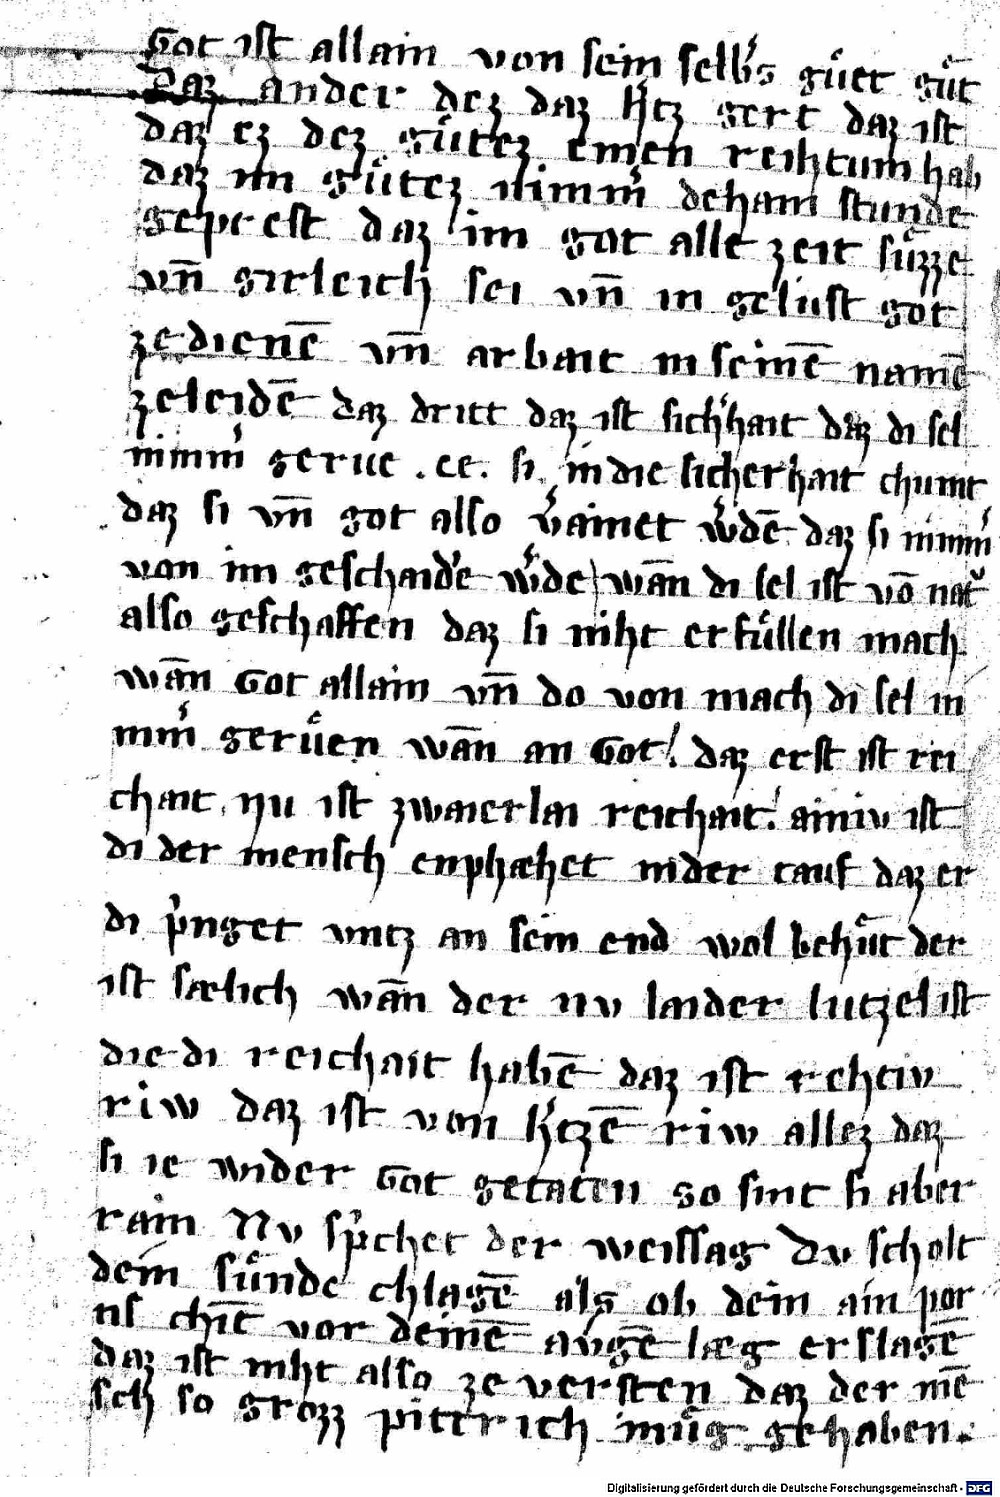 Got ist allain von sein selbs guͤt guͤt
Daz ander dez daz h̾tz gert daz ist
daz ez dez guͤtez einen reihtum hab
daz im guͤtez nimm̾ dehain stunde
geprest daz im got alle zeit suͤzze
vn̄ girleich sei vn̄ in gelust got
ze dienē vn̄ arbait in seinē namē
ze leidē daz dritt daz ist sich̾hait daz di sel
nimm̾ gerue .ee. si in die sicherhait chumt
daz si vn̄ got also v̾ainet w̾dē daz si nimm̾
von im geschaidē w̾de wān di sel ist vō nat
also geschaffen daz si niht erfuͤllen mach
wān Got allain vn̄ do von mach di sel in
mm̾ geruͤen wān an Got. daz erst ist rei
chait. nu ist zwaierlai reichait. ainiv ist
di der mensch enphæhet in der tauf daz er
di p̾nget vntz an sein end wol behuͤt der
ist sælich wān der nv laider lutzel ist
die di reichait habē daz ist rehtiv
riw daz ist von h̾tzē riw allez daz
si ie wider Got getaten so sint si aber
rain Nv sp̾chet der weissag Du scholt
dein suͤnde chlagē als ob dein ain por
ns chīt vor deinē augē læg erslagē
daz ist niht also ze versten daz der mē
sch so grozz pittrich muͤg gehaben.
Digitalisierung gefördert durch die Deutsche Forschungsgemeinschaft - DFG